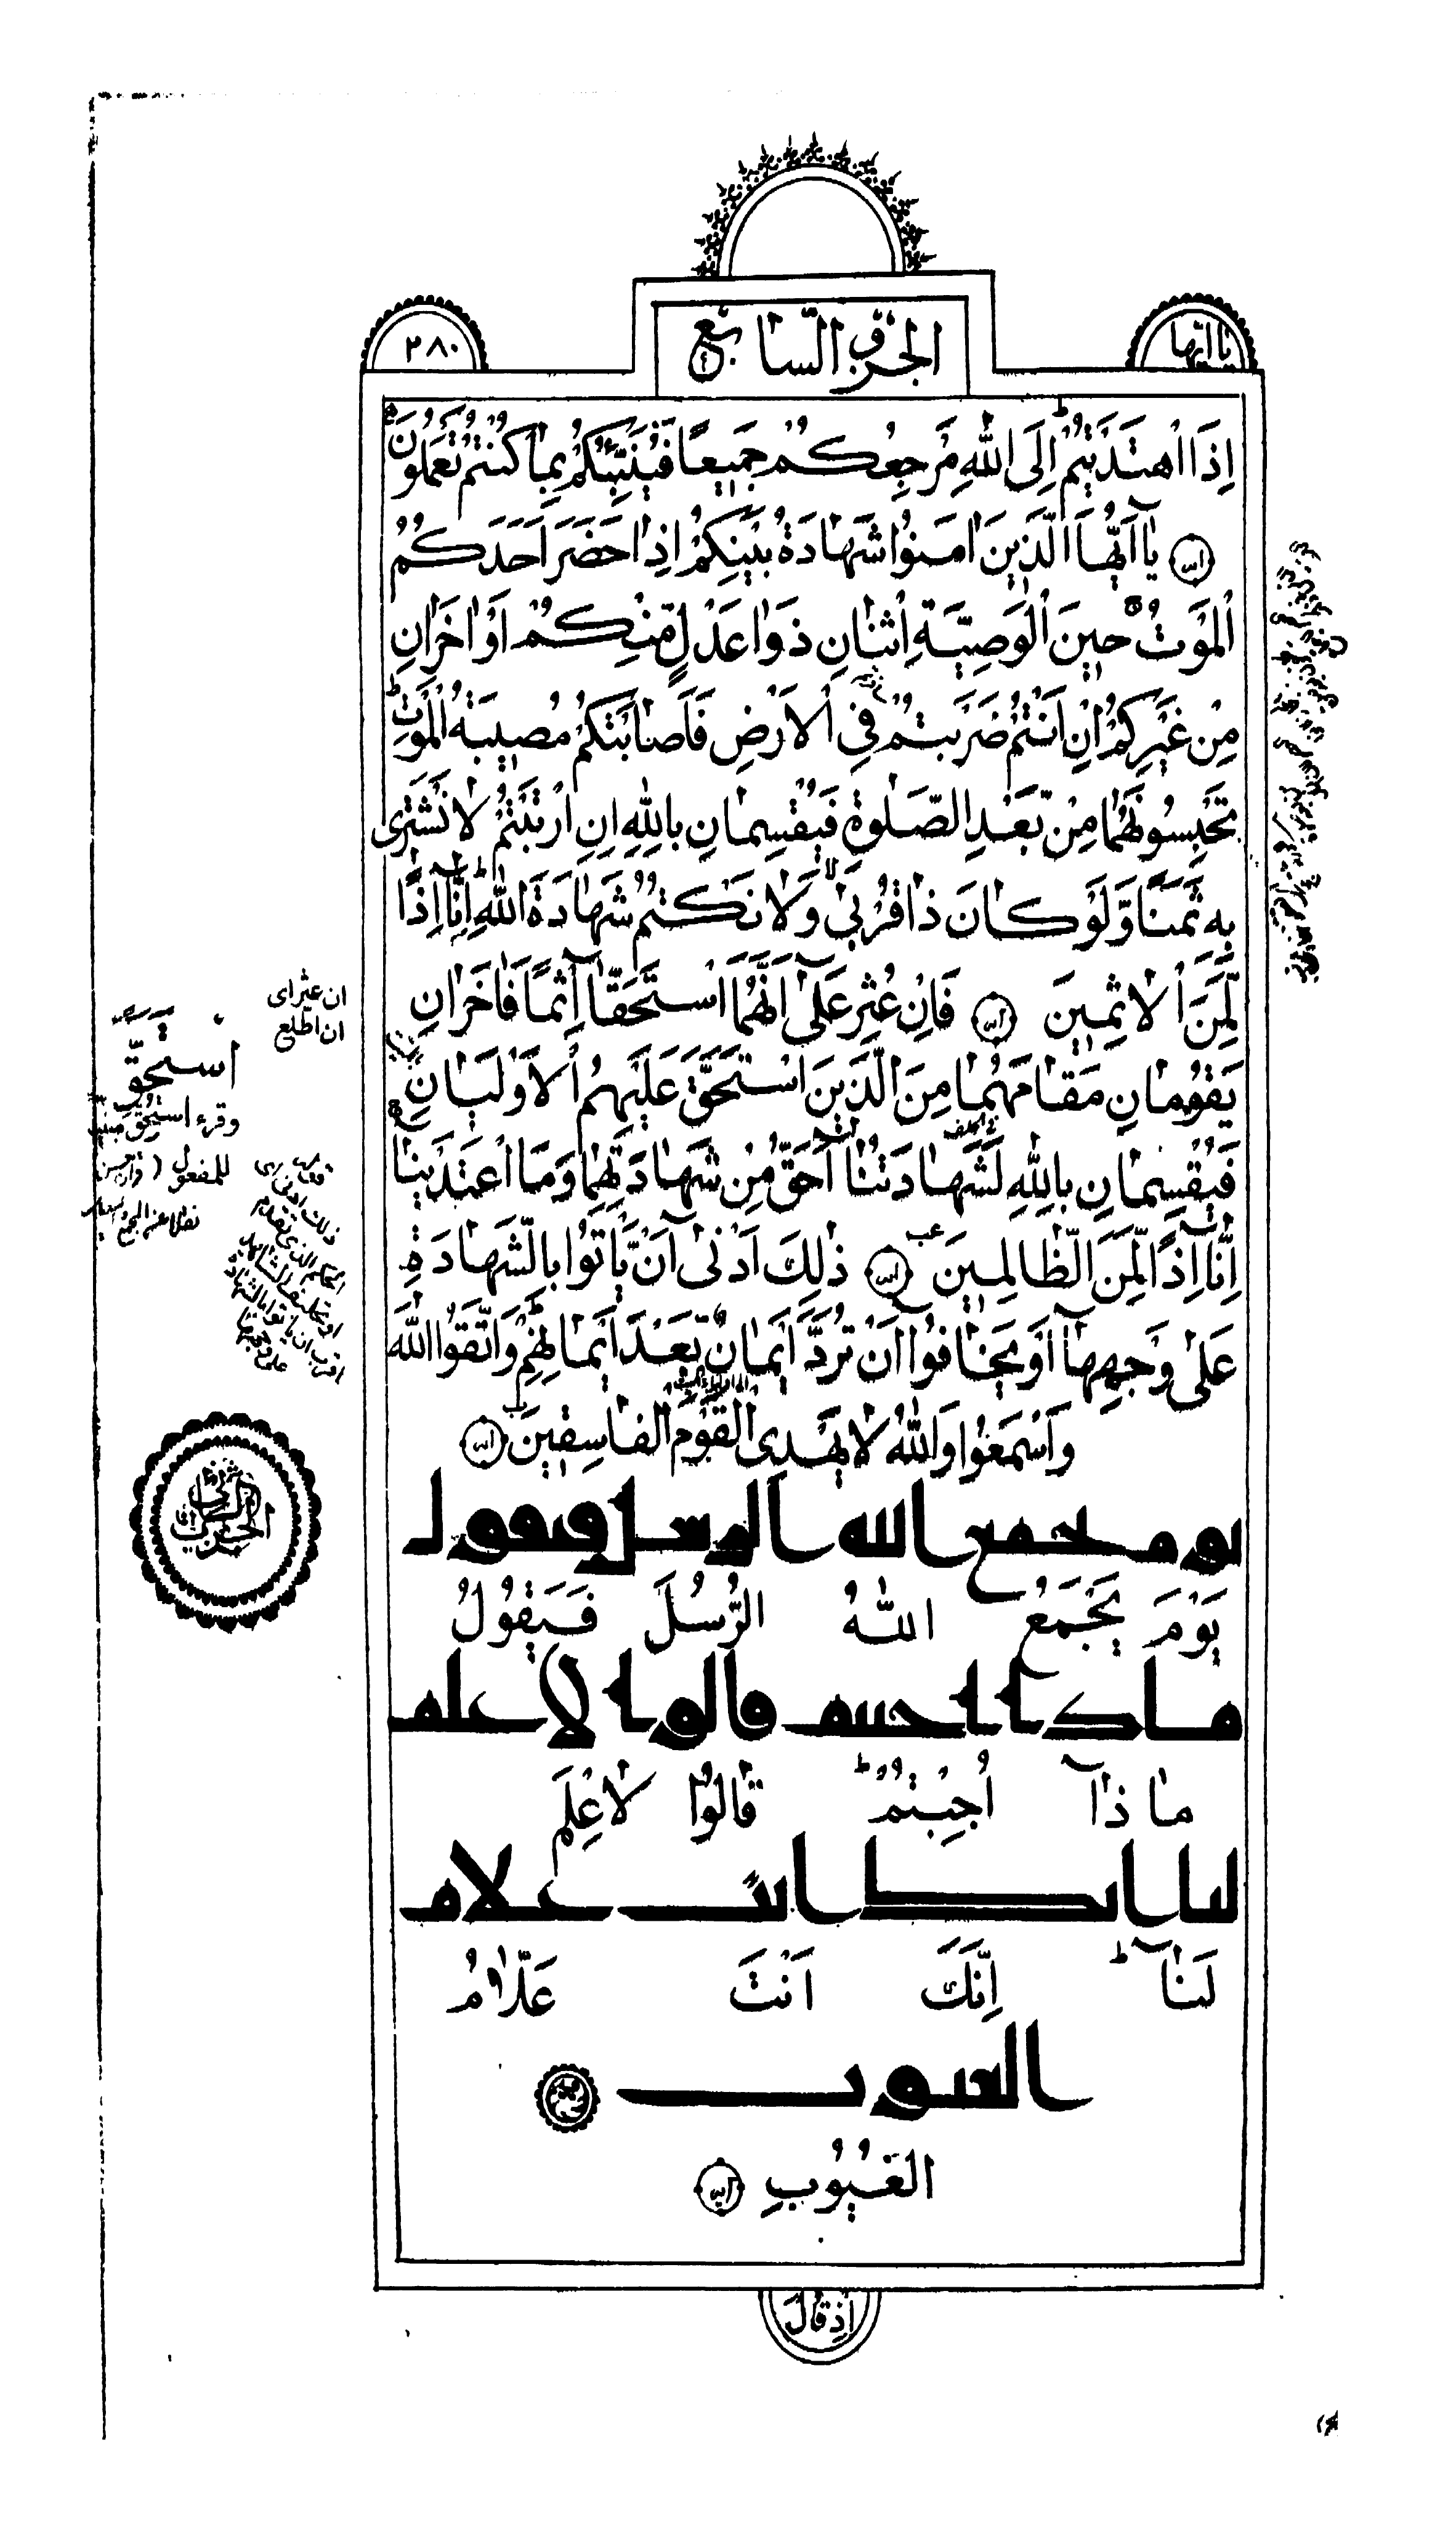 يا ايّها
الجزؤ السّابع
٢٨٠
اِذَا اهْتَدَيْتُمْ ؕ اِلَى اللّٰهِ مَرْجِعُكُمْ جَمِيعًا فَيُنَبِّئُكُمْ بِمَا كُنْتُمْ تَعْمَلُونَ
يٰٓا اَيُّهَا الَّذِينَ اٰمَنُوا شَهَادَةُ بَيْنِكُمْ اِذَا حَضَرَ اَحَدَكُمُ
الْمَوْتُ حِينَ الْوَصِيَّةِ اثْنَانِ ذَوَا عَدْلٍ مِّنْكُمْ اَوْ اٰخَرَانِ
مِنْ غَيْرِكُمْ اِنْ اَنْتُمْ ضَرَبْتُمْ فِي الْاَرْضِ فَاَصَابَتْكُمْ مُصِيبَةُ الْمَوْتِ ؕ
تَحْبِسُونَهُمَا مِنْ بَّعْدِ الصَّلٰوةِ فَيُقْسِمَانِ بِاللّٰهِ اِنِ ارْتَبْتُمْ لَا نَشْتَرِى
بِهِ ثَمَنًا وَّلَوْ كَانَ ذَا قُرْبٰى ۙ وَلَا نَكْتُمُ شَهَادَةَ اللّٰهِ ؕ اِنَّآ اِذًا
لَّمِنَ الْاٰثِمِينَ فَاِنْ عُثِرَ عَلٰٓى اَنَّهُمَا اسْتَحَقَّآ اِثْمًا فَاٰخَرَانِ
يَقُومَانِ مَقَامَهُمَا مِنَ الَّذِينَ اسْتَحَقَّ عَلَيْهِمُ الْاَوْلَيَانِ
فَيُقْسِمَانِ بِاللّٰهِ لَشَهَادَتُنَا اَحَقُّ مِنْ شَهَادَتِهِمَا وَمَا اعْتَدَيْنَا
اِنَّآ اِذًا لَّمِنَ الظَّالِمِينَ ذٰلِكَ اَدْنٰٓى اَنْ يَّأْتُوا بِالشَّهَادَةِ
عَلٰى وَجْهِهَآ اَوْ يَخَافُوٓا اَنْ تُرَدَّ اَيْمَانٌ بَّعْدَ اَيْمَانِهِمْ ؕ وَاتَّقُوا اللّٰهَ
وَاسْمَعُوا وَاللّٰهُ لَا يَهْدِى الْقَوْمَ الْفَاسِقِينَ
يوم يجمع الله الرسل فيقول
يَوْمَ يَجْمَعُ اللّٰهُ الرُّسُلَ فَيَقُولُ
ماذا اجبتم قالوا لا علم
مَا ذَآ اُجِبْتُمْ ؕ قَالُوا لَا عِلْمَ
لنا انك انت علام
لَنَآ ؕ اِنَّكَ اَنْتَ عَلَّامُ
الغيوب
الْغُيُوبِ
اِذْ قَالَ
ان عثر اى
ان اطلع
اسْتَحَقَّ
وقرء استحق
للمفعول
ذلك ادنى اى
الحكم الذى تقدم
اقرب ان ياتوا بالشهادة